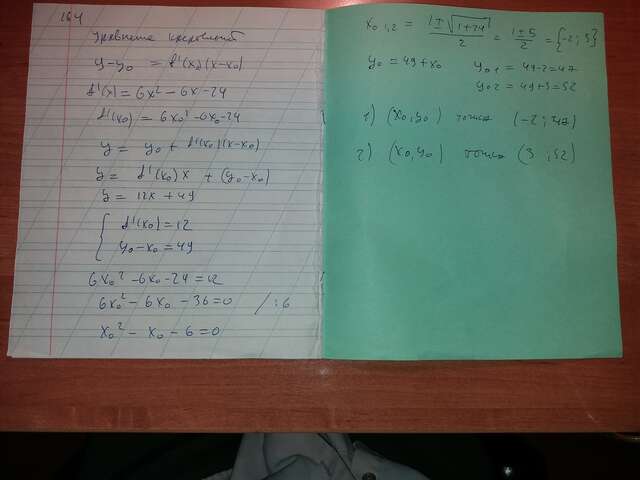 164
Уравнение
y-y₀ = f'(x₀)(x-x₀)
f'(x) = 6x² - 6x - 24
f'(x₀) = 6x₀² - 6x₀ - 24
y = y₀ + f'(x₀)(x-x₀)
y = f'(x₀)x + (y₀-x₀)
y = 12x + 49
f'(x₀) = 12
y₀ - x₀ = 49
6x₀² - 6x₀ - 24 = 12
6x₀² - 6x₀ - 36 = 0 /:6
x₀² - x₀ - 6 = 0
x₀ 1,2 = (1±√(1+24))/2 = (1±5)/2 = {-2; 3}
y₀ = 49 + x₀ y₀₁ = 49-2 = 47
y₀₂ = 49+3 = 52
1) (x₀; y₀) точка (-2; 47)
2) (x₀; y₀) точка (3; 52)